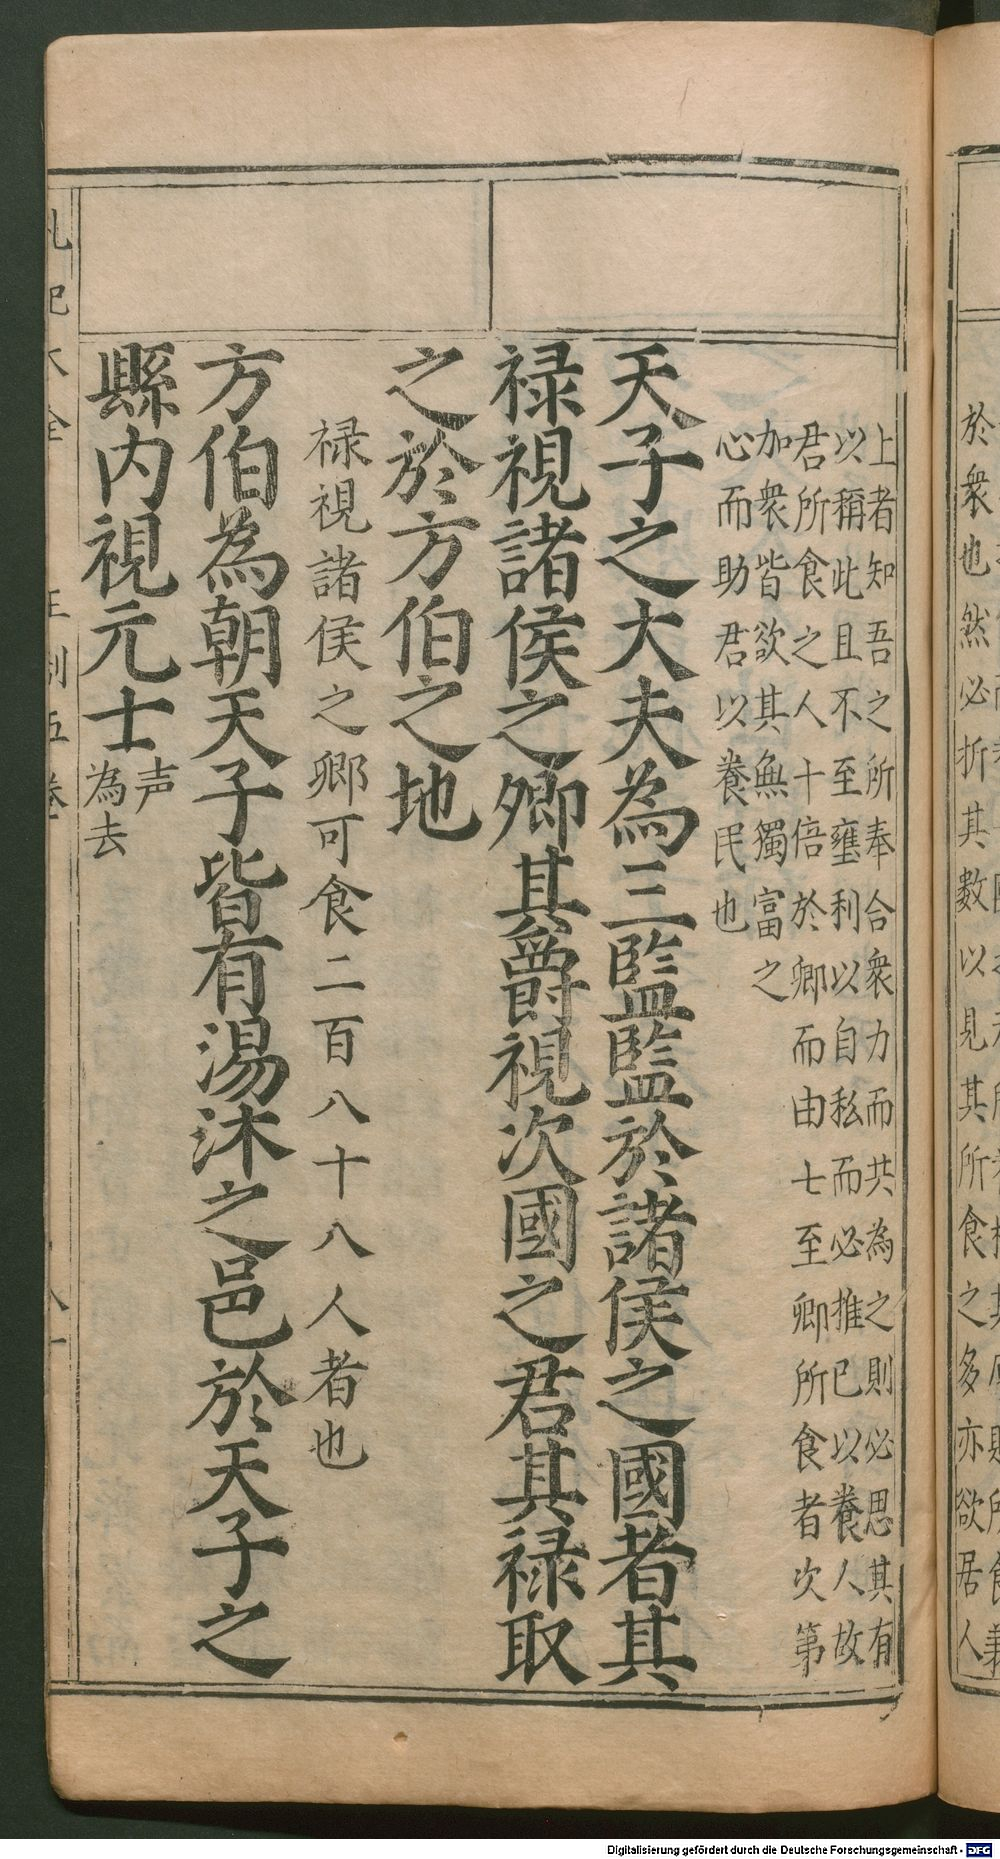 上者知吾之所奉合衆力而共為之則必思其有
以稱此且不至壅利以自私而必推已以養人故
君所食之人十倍於卿而由七至卿所食者次第
加衆皆欲其無獨富之
心而助君以養民也
天子之大夫為三監監於諸侯之國者其
禄視諸侯之卿其爵視次國之君其禄取
之於方伯之地
禄視諸侯之卿可食二百八十八人者也
方伯為朝天子皆有湯沐之邑於天子之
縣內視元士為去声
於衆也然必折其數以見其所食之多亦欲居人
Digitalisierung gefördert durch die Deutsche Forschungsgemeinschaft - DFG